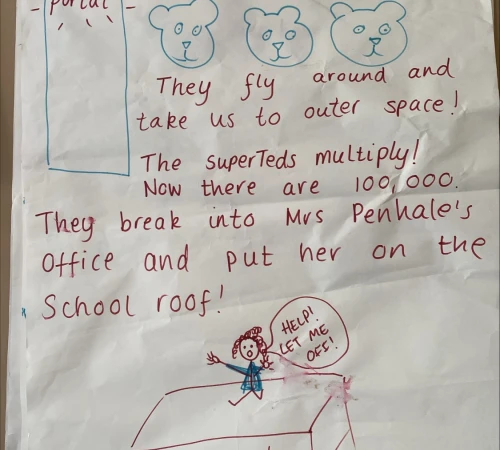 - portal -
They fly around and
take us to outer space!
The superTeds multiply!
Now there are 100,000.
They break into Mrs Penhale's
office and put her on the
School roof!
HELP!
LET ME
OFF!